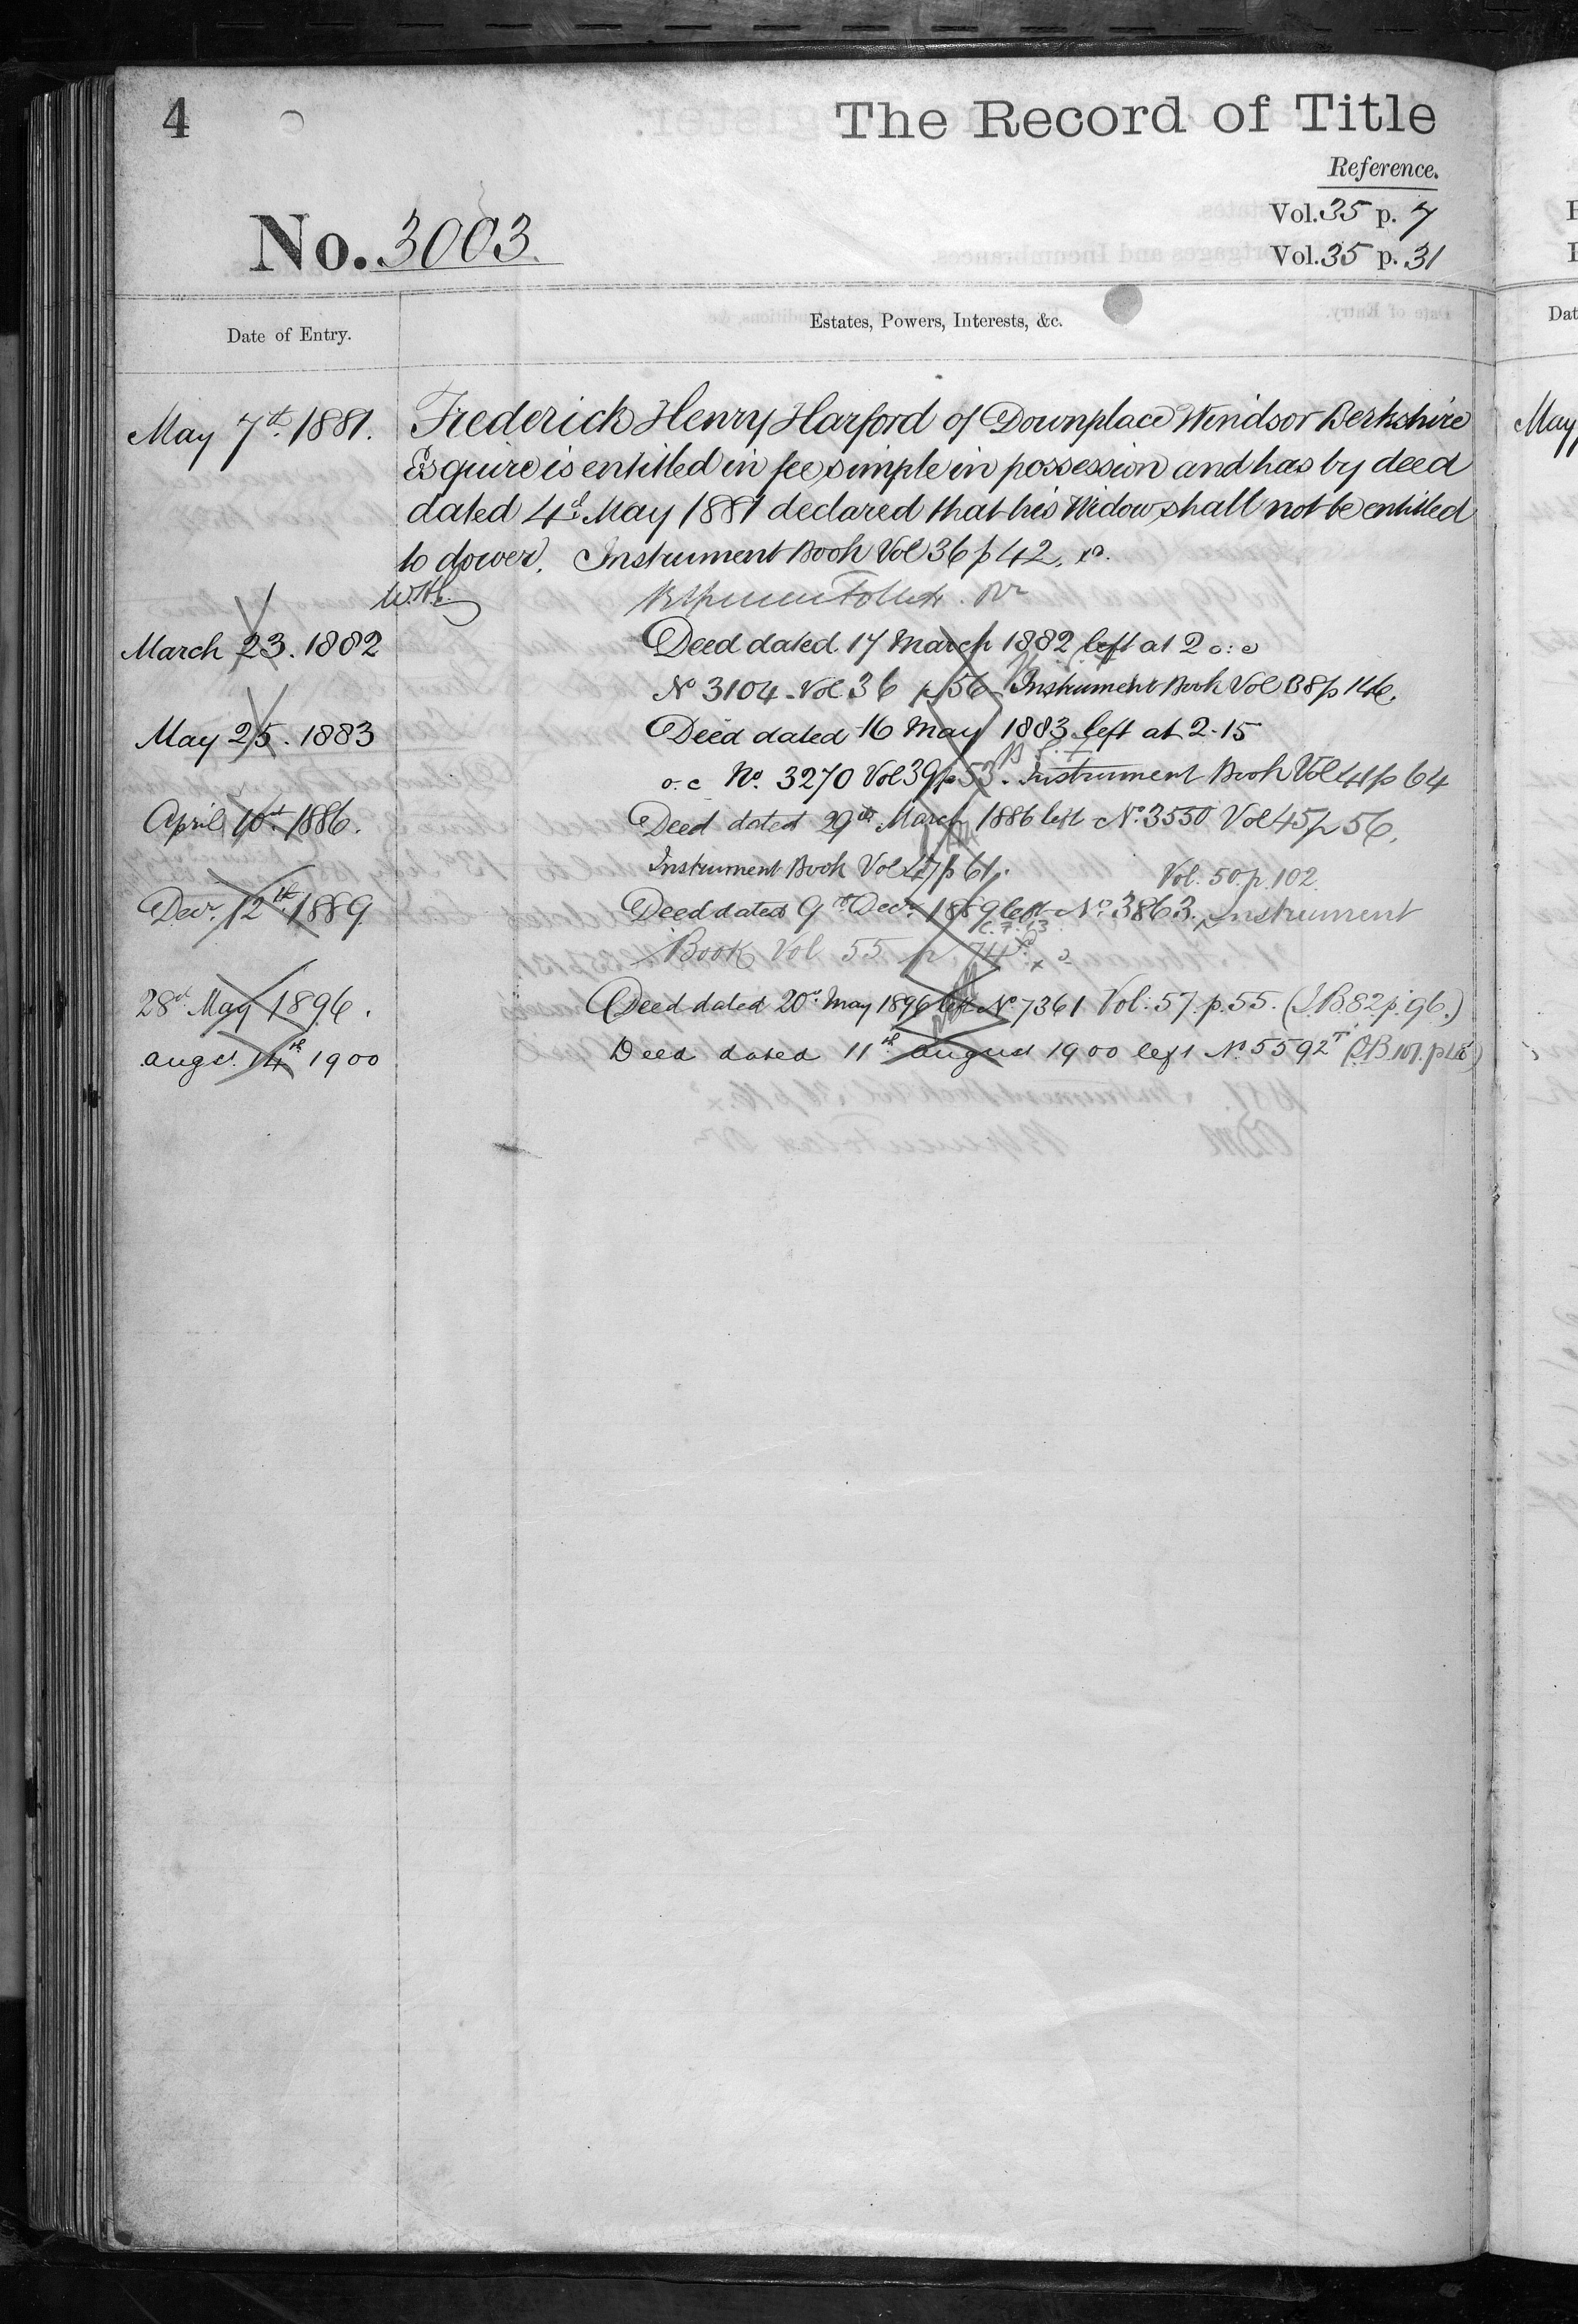 4
The Record of Title
Reference.
Vol. 35 p. 7
No. 3003.
Vol. 35 p. 31
Date of Entry.
Estates, Powers, Interests, &c.
May 7th. 1881. Frederick Henry Harford of Downplace Windsor Berkshire
Esquire is entitled in fee simple in possession and has by deed
dated 4th May 1881 declared that his Widow shall not be entitled
to dower. Instrument Book Vol 36 p 42.
March 23. 1882 Deed dated 17 March 1882 left at 2 o: c
No 3104 Vol 36 p 56 Instrument Book Vol 38 p 146.
May 25. 1883 Deed dated 16 May 1883 left at 2.15
o.c No. 3270 Vol 39 p 53. Instrument Book Vol 41 p 64
April 10th. 1886. Deed dated 29th March 1886 left No. 3550 Vol 45 p 56.
Instrument Book Vol 47 p 61.
Vol. 50. p. 102.
Decr. 12th 1889. Deed dated 9th Decr. 1889 left No. 3863. Instrument
Book Vol 55 p 74
28th May 1896. Deed dated 20th May 1896 left No. 7361 Vol: 57. p. 55. (I.B. 82 p. 96.)
augst. 14th 1900 Deed dated 11th august 1900 left No. 5592T
Dat
May